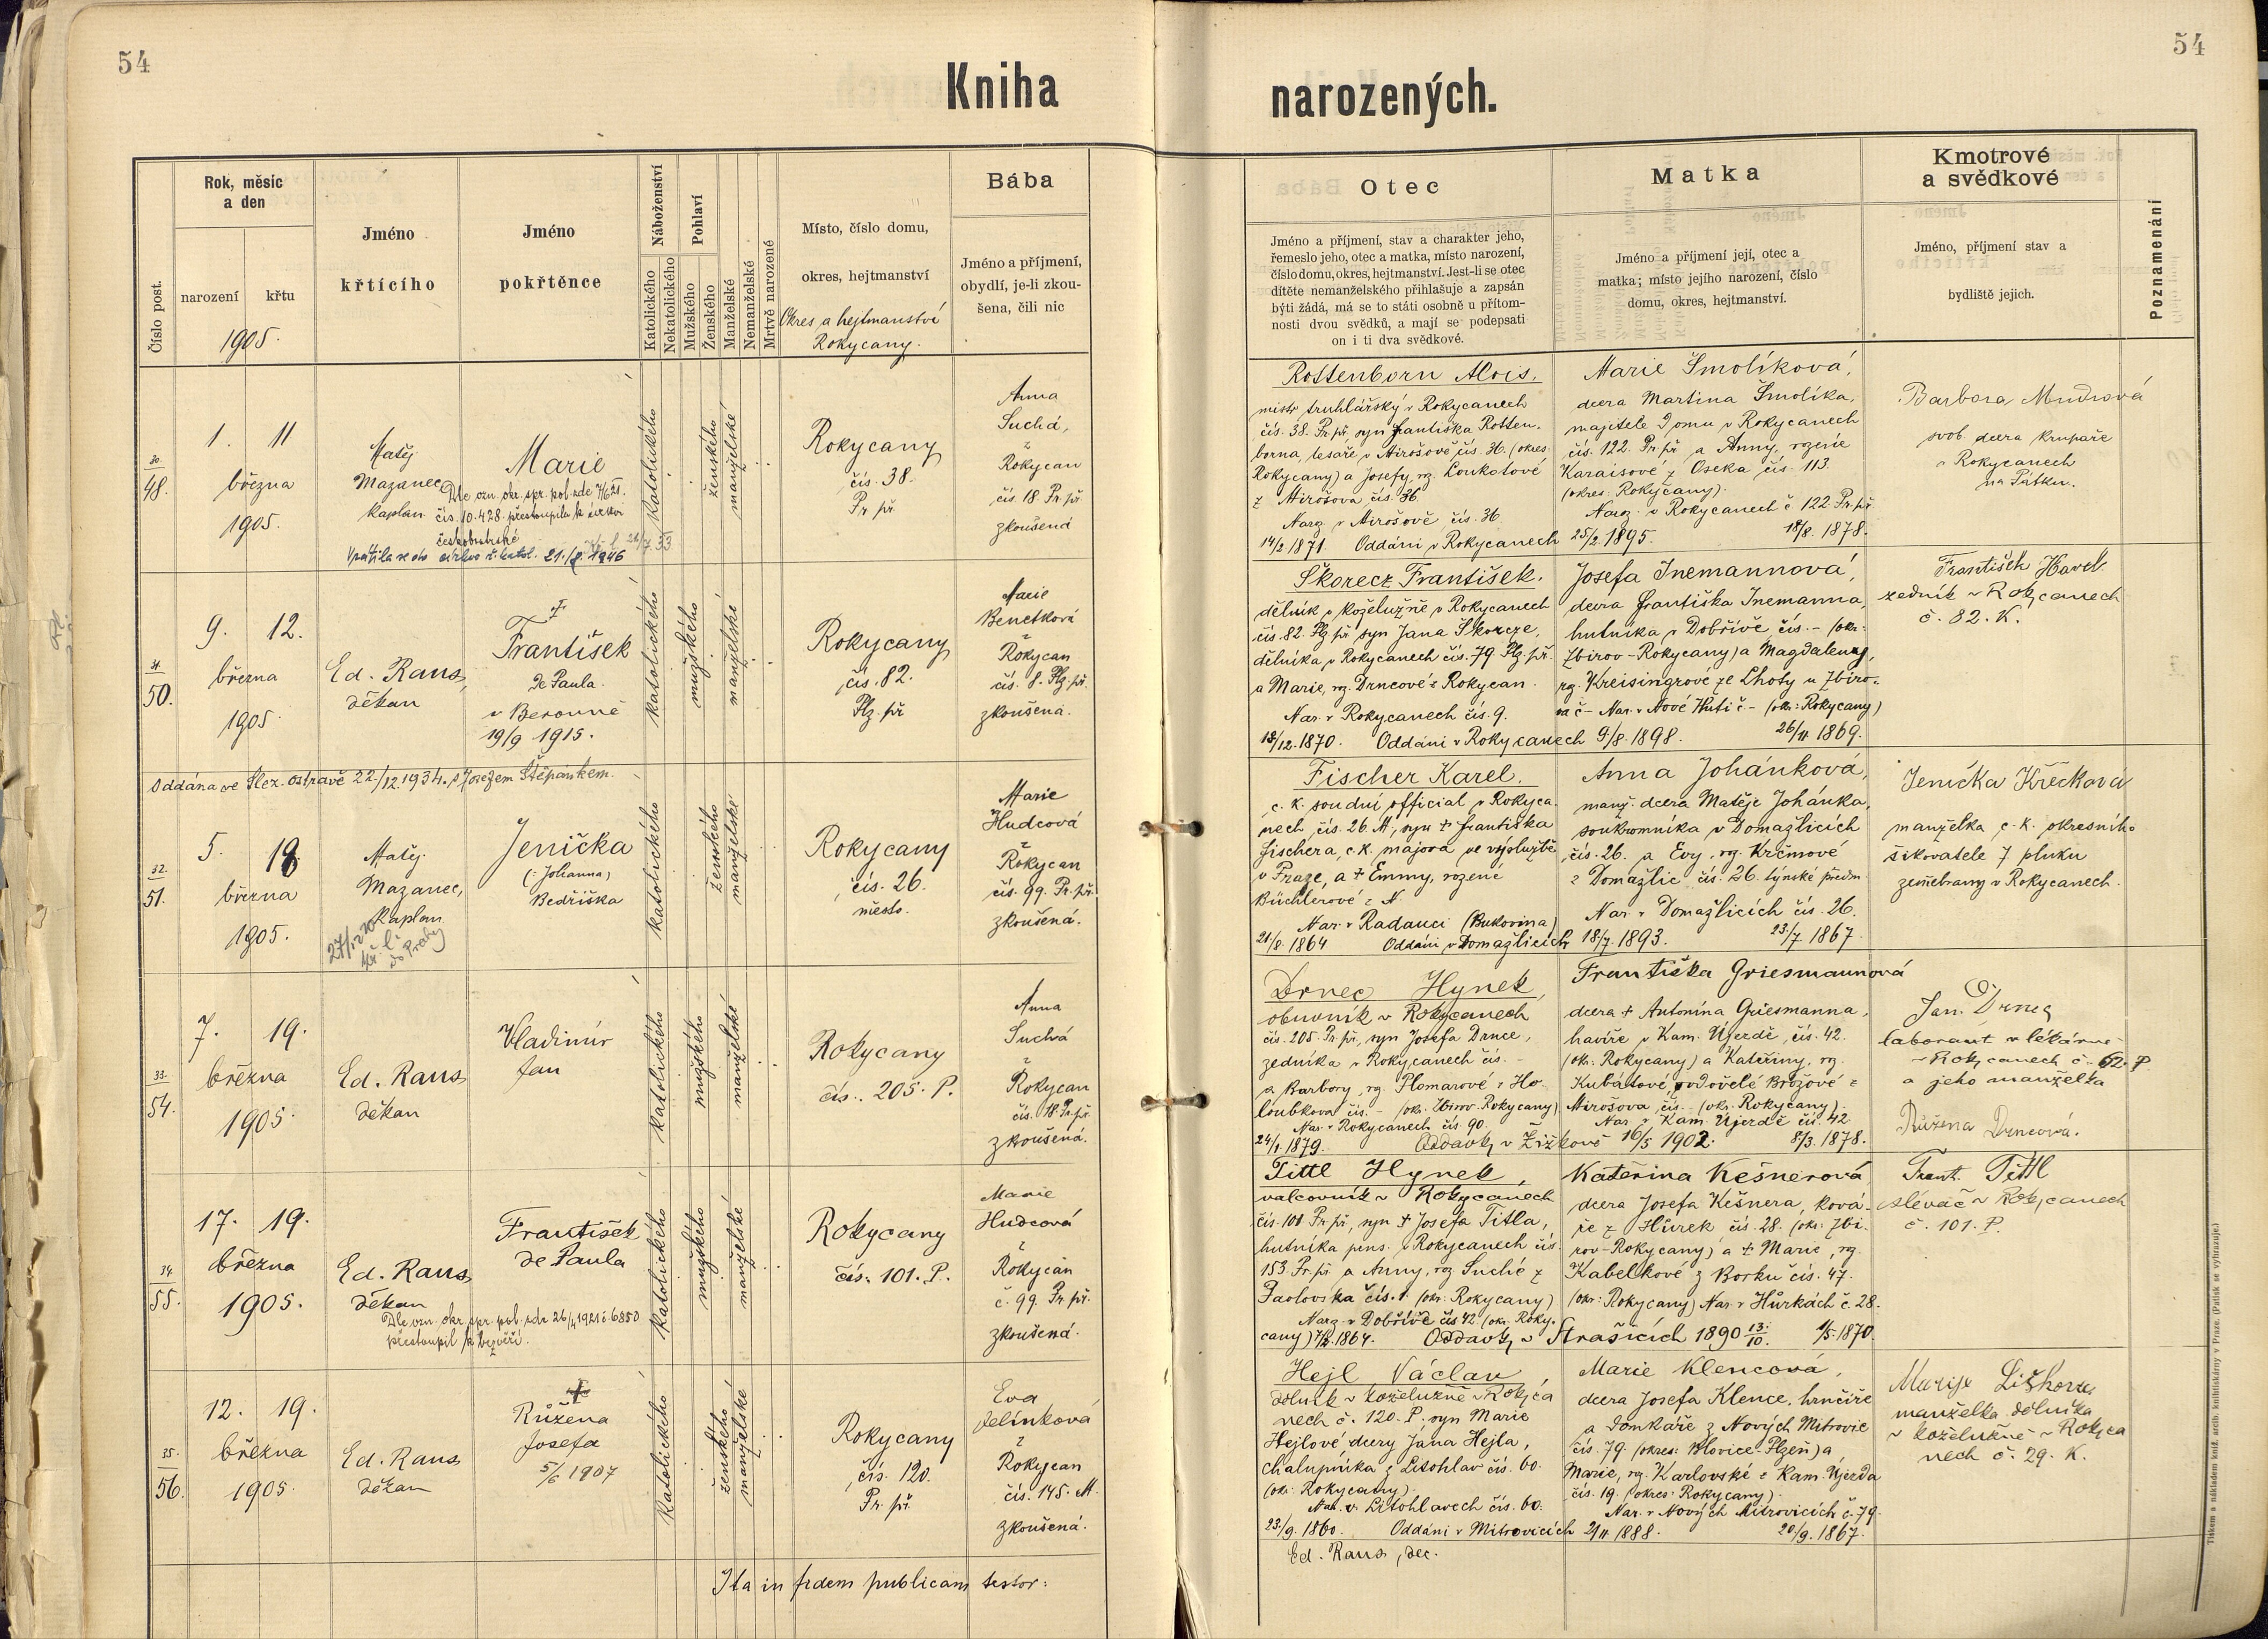 54
Kniha
Číslo post.
Rok, měsíc
a den
narození
křtu
1905.
Jméno
křtícího
Jméno
pokřtěnce
Náboženství
Katolického
Nekatolického
Pohlaví
Mužského
Ženského
Manželské
Nemanželské
Mrtvě narozené
Místo, číslo domu,
okres, hejtmanství
Okres a hejtmanství
Rokycany.
Bába
Jméno a příjmení,
obydlí, je-li zkou-
šena, čili nic
30.
48.
1. 11
března
1905.
Matěj
Mazanec
kaplan
Marie
Dle ozn. okr. spr. pol. zde 7/6 21.
čís. 10.428 přestoupila k církvi
českobratrské
Vrátila se do církve ř. katol. 21./8. 1946
katolického
ženského
manželské
Rokycany
čís. 38.
Pr. př.
Anna
Suchá,
z
Rokycan
čís. 18 Pr. př.
zkoušená
31.
50.
9. 12.
března
1905
Ed. Raus,
děkan
†
František
de Paula.
v Berouně
19/9 1915.
katolického
mužského
manželské
Rokycany
čís. 82.
Plz. př
Marie
Benetková
z
Rokycan
čís. 8. Plz. př.
zkoušená.
Oddána ve Slez. Ostravě 22./12.1934. s Josefem Štěpánkem.
32.
51.
5. 18
března
1905.
Matěj
Mazanec,
kaplan
27/12
kř. l.
do Prahy
Jenička
(: Johanna)
Bedřiška
katolického
ženského
manželské
Rokycany
čís. 26.
město.
Marie
Hudcová
z
Rokycan
čís. 99. Pr. př.
zkoušená.
33.
54.
7. 19.
března
1905
Ed. Raus
děkan
Vladimír
Jan
katolického
mužského
manželské
Rokycany
čís. 205. P.
Anna
Suchá
z
Rokycan
čís. 18 Pr. př.
zkoušená.
34.
55.
17. 19.
března
1905.
Ed. Raus
děkan
František
de Paula
Dle ozn. okr. spr. pol. zde 26/4 1921 č. 6850
přestoupil k bezvěří.
katolického
mužského
manželské
Rokycany
čís. 101. P.
Marie
Hudcová
z
Rokycan
č. 99. Pr. př.
zkoušená.
35.
56.
12. 19.
března
1905.
Ed. Raus
děkan
†
Růžena
Josefa
5/6 1907
katolického
ženského
manželské
Rokycany
čís. 120.
Pr. př.
Eva
Jelínková
z
Rokycan
čís. 145. M.
zkoušená.
Ita in fidem publicam testor:
54
narozených.
Otec
Jméno a příjmení, stav a charakter jeho,
řemeslo jeho, otec a matka, místo narození,
číslo domu, okres, hejtmanství. Jest-li se otec
dítěte nemanželského přihlašuje a zapsán
býti žádá, má se to státi osobně u přítom-
nosti dvou svědků, a mají se podepsati
on i ti dva svědkové.
Matka
Jméno a příjmení její, otec a
matka; místo jejího narození, číslo
domu, okres, hejtmanství.
Kmotrové
a svědkové
Jméno, příjmení stav a
bydliště jejich.
Poznamenání
Rottenborn Alois.
mistr truhlářský v Rokycanech
čís. 38. Pr. př, syn Františka Rotten-
borna, tesaře v Mirošově čís. 36. (okres
Rokycany) a Josefy, rz. Loukotové
z Mirošova čís. 36
Naroz. v Mirošově čís. 36
14/2 1871. Oddáni v Rokycanech 25/2 1895.
Marie Šmolíková,
dcera Martina Šmolíka,
majitele domu v Rokycanech
čís. 122. Pr. př. a Anny, rozené
Karaisové z Oseka čís. 113.
(okres. Rokycany).
Naroz. v Rokycanech č. 122 Pr. př
18/8. 1878.
Barbora Mudrová
svob. dcera krupaře
v Rokycanech
na Pátku.
Škorecz František.
dělník v koželužně v Rokycanech
čís. 82. Plz. př. syn Jana Škorcze,
dělníka v Rokycanech čís. 79. Plz. př.
a Marie, rz. Drncové z Rokycan.
Nar. v Rokycanech čís. 9.
18/12. 1870. Oddáni v Rokycanech 9/8. 1898.
Josefa Inemannová,
dcera Františka Inemanna,
hutníka v Dobřívě čís. – (okr:
Zbirov – Rokycany) a Magdaleny,
rz. Kreisingrové ze Lhoty u Zbiro-
va č – Nar. v Nové Huti č – (okr: Rokycany)
26/11 1869.
František Havel
zedník v Rokycanech
č. 82. K.
Fischer Karel.
c. k. soudní official v Rokyca-
nech čís. 26. M, syn † Františka
Fischera, c. k. majora ve výslužbě
v Praze, a † Emmy, rozené
Büchlerové z N.
Nar. v Radauci (Bukovina)
21/8. 1864 Oddáni v Domažlicích 18/7. 1893.
Anna Johánková,
manž. dcera Matěje Johánka,
soukromníka v Domažlicích
čís. 26. a Evy, rz. Krčmové
z Domažlic čís. 26. týnské předm.
Nar. v Domažlicích čís. 26.
23/7 1867.
Jenička Křečková
manželka c. k. okresního
šikovatele 7 pluku
zeměbrany v Rokycanech.
Drnec Hynek,
obuvník v Rokycanech
čís. 205. Pr. př, syn Josefa Drnce,
zedníka v Rokycanech čís. –
a Barbory, rz. Plomarové z Ho-
loubkova čís. – (okr. Zbirov. Rokycany)
Nar. v Rokycanech čís. 90.
24/1. 1879. Oddavky v Žižkově 16/5 1902.
Františka Griesmannová
dcera † Antonína Griesmanna,
havíře v Kam. Újezdě, čís. 42.
(okr. Rokycany) a Kateřiny, rz.
Kubátové, ovdovělé Brožové z
Mirošova čís. – (okr. Rokycany)
Nar. v Kam. Újezdě čís. 42.
8/3. 1878.
Jan Drnec
laborant v lékárně
v Rokycanech č. 62. P
a jeho manželka
Růžena Drncová.
Tittl Hynek,
valcovník v Rokycanech
čís. 101 Pr. př, syn † Josefa Titla,
hutníka pens. v Rokycanech čís.
153 Pr. př a Anny, rz. Suché z
Pavlovska čís. 1. (okr: Rokycany)
Naroz. v Dobřívě čís 42 (okr. Roky-
cany) 1864. Oddavky v Strašicích 1890 13./10.
Kateřina Kešnerová
dcera Josefa Kešnera, ková-
ře z Hůrek čís. 28. (okr: Zbi-
rov – Rokycany) a † Marie, rz.
Kabelkové z Borku čís. 47.
(okr: Rokycany) Nar. v Hůrkách č. 28.
1/5. 1870.
Frant. Tittl
slévač v Rokycanech
č. 101. P.
Hejl Václav
dělník v koželužně v Rokyca
nech č. 120. P. syn Marie
Hejlové, dcery Jana Hejla,
chalupníka z Litohlav čís. 60.
(okr: Rokycany).
Nar. v. Litohlavech čís. 60.
23./9. 1860. Oddáni v Mitrovicích 1888.
Marie Klencová,
dcera Josefa Klence, hrnčíře
a domkáře z Nových Mitrovic
čís. 79. (okres: Blovice-Plzeň) a
Marie, rz. Karlovské z Kam. Újezda
čís. 19. (okres: Rokycany).
Nar. v Nových Mitrovicích č. 79.
20/9. 1867.
Marije Liškova
manželka dělníka
v koželužně v Rokyca
nech č. 29. K.
Ed. Raus, dec.
Tiskem a nákladem knížet. arcib. knihtiskárny v Praze. (Patisk se vyhrazuje.)